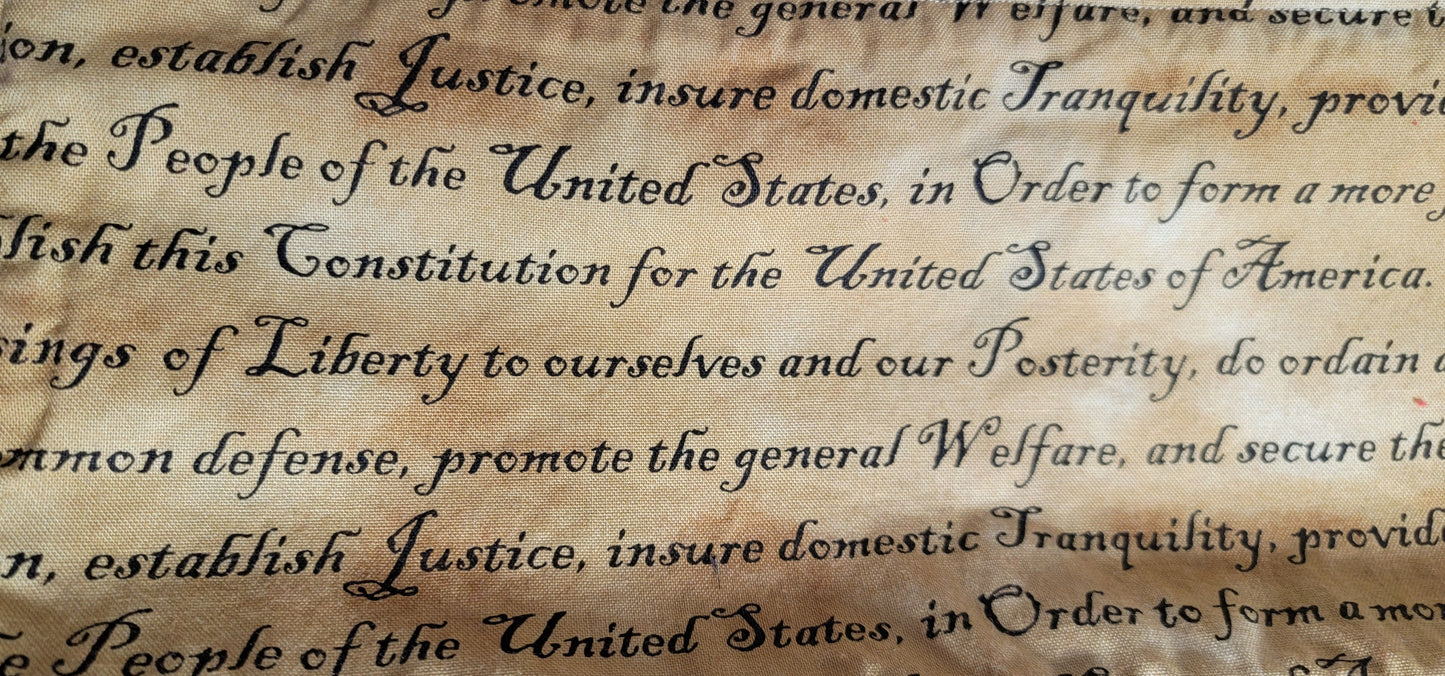 the general Welfare, and secure
establish Justice, insure domestic Tranquility,
the People of the United States, in Order to form a more
this Constitution for the United States of America.
of Liberty to ourselves and our Posterity, do ordain
defense, promote the general Welfare, and secure the
establish Justice, insure domestic Tranquility,
People of the United States, in Order to form a